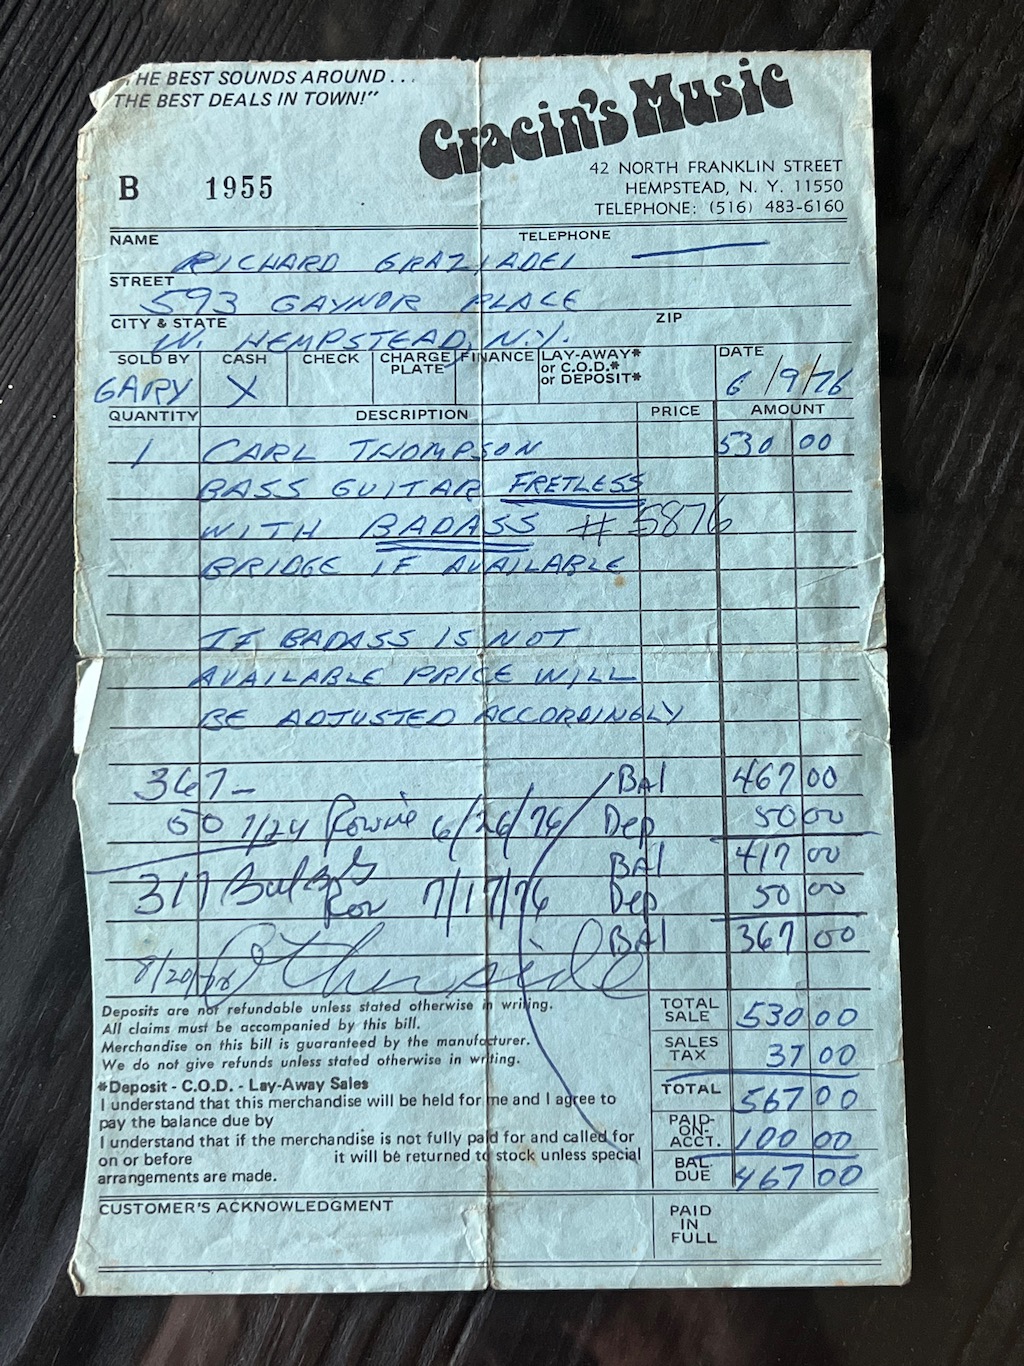 "THE BEST SOUNDS AROUND...
THE BEST DEALS IN TOWN!"
Gracin's Music
42 NORTH FRANKLIN STREET
HEMPSTEAD, N. Y. 11550
TELEPHONE: (516) 483-6160
B 1955
NAME RICHARD GRAZIADEI TELEPHONE —
STREET 593 GAYNOR PLACE
CITY & STATE W. HEMPSTEAD, N.Y. ZIP
SOLD BY CASH CHECK CHARGE PLATE FINANCE LAY-AWAY* or C.O.D.* or DEPOSIT* DATE
GARY X 6/9/76
QUANTITY DESCRIPTION PRICE AMOUNT
1 CARL THOMPSON 530 00
BASS GUITAR FRETLESS
WITH BADASS # 5876
BRIDGE IF AVAILABLE
IF BADASS IS NOT
AVAILABLE PRICE WILL
BE ADJUSTED ACCORDINGLY
367- BAl 467 00
50 7/24 6/26/76 Dep 50 00
BAl 417 00
317 7/17/76 Dep 50 00
BAl 367 00
8/20/76
Deposits are not refundable unless stated otherwise in writing.
All claims must be accompanied by this bill.
Merchandise on this bill is guaranteed by the manufacturer.
We do not give refunds unless stated otherwise in writing.
*Deposit - C.O.D. - Lay-Away Sales
I understand that this merchandise will be held for me and I agree to
pay the balance due by
I understand that if the merchandise is not fully paid for and called for
on or before it will be returned to stock unless special
arrangements are made.
TOTAL SALE 530 00
SALES TAX 37 00
TOTAL 567 00
PAID-ON-ACCT. 100 00
BAL. DUE 467 00
CUSTOMER'S ACKNOWLEDGMENT
PAID IN FULL